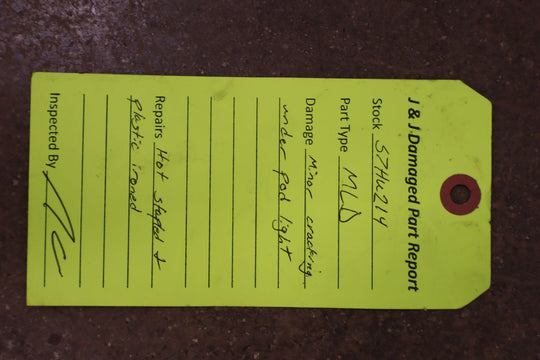 J & J Damaged Part Report
Stock S7HW214
Part Type MLD
Damage Minor cracking
under pod light
Repairs Hot stapled &
plastic ironed
Inspected By